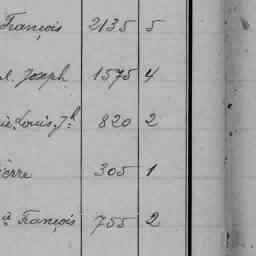 François 2135 5
Joseph 1575 4
Louis Jh 820 2
ierre 305 1
François 755 2